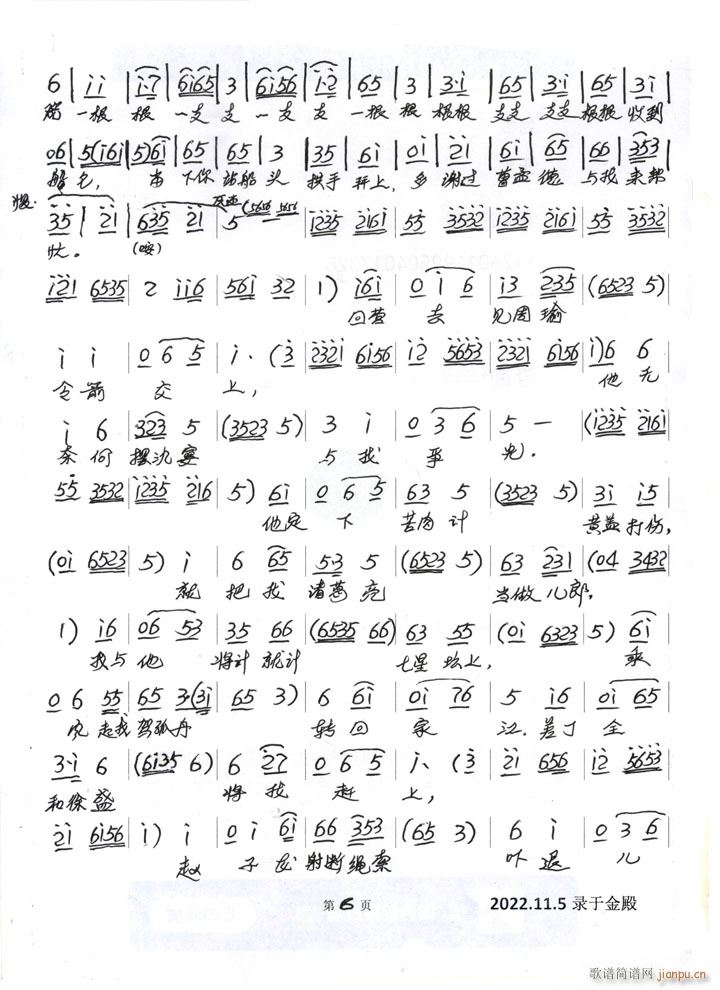 6 | i i | i·7 | 6i65 | 3 | 6i56 | i2 | 65 | 3 | 3·i | 65 | 3·i | 65 | 3i
箭 一根 根 一支 支 一支 支 一根 根 根根 支支 支支 根根 收到
06 | 5(i6i | 5)6i | 65 | 65 | 3 | 35 | 6i | 0i | 2i | 6i | 65 | 66 | 353
船仓, 下你 站船头 拱手 拜上, 多谢过 曹孟德 与我 来帮
慢·
35 | 2i | 635 2i | 5 (5656 1656 | 1235 2161 | 55 3532 | 1235 2161 | 55 3532
忙。 (哎)
i2i 6535 | 2 ii6 | 56i 32 | 1) i6i | 0 i 6 | i3 235 | (6523 5)
回营 去 见周瑜
i i | 0 6 5 | i· (3 | 2321 6156 | i2 5653 | 2321 6156 | i) 6 6
令箭 交 上, 他无
i 6 | 323 5 | (3523 5) | 3 i | 0 3 6 | 5 — | (1235 2161
奈何 摆 宴 与我 争 光.
55 3532 | 1235 216 | 5) 6i | 0 6 5 | 63 5 | (3523 5) | 3i i5
他定 下 苦肉计 黄盖打伤,
(0i 6523 | 5) i | 6 65 | 53 5 | (6523 5) | 63 231 | (04 3432
就 把我 诸葛亮 当做儿郎,
1) i6 | 06 53 | 35 66 | (6535 66) | 63 55 | (0i 6323 | 5) 6i
我与 他 将计就计 七星坛上, 乘
0 6 55 | 65 3·(3i | 65 3) | 6 6i | 0i 76 | 5 i6 | 0i 65
风 起我驾孤舟 转回 家 江. 差丁 全
3·i 6 | (6i35 6) | 6 27 | 0 6 5 | i· (3 | 2i 656 | i2 5653
和徐盛 将我 赶 上,
2i 6i56 | i) i | 0 i 6i | 66 353 | (65 3) | 6 i | 0 3 6
赵 子龙射断绳索 吓退 儿
第 6 页 2022.11.5 录于金殿
歌谱简谱网
jianpu.cn